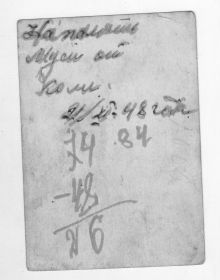 На память
Муси от
Коли
21/V-48 год
74 84
-48
26